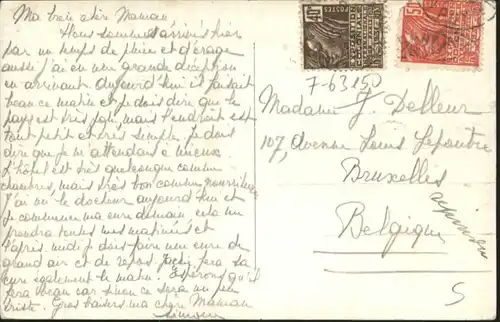 Ma bien chère Maman
Nous sommes arrivés hier
par un temps de pluie et d'orage
aussi j'ai eu une grande déception
en arrivant. Aujourd'hui il faisait
beau ce matin et je dois dire que le
pays est très joli, mais l'endroit est
tout petit et très simple. Je dois
dire que je m'attendais à mieux.
L'hôtel est très quelconque comme
chambres, mais très bon comme nourriture
J'ai vu le docteur aujourd'hui et
je commence ma cure demain cela me
prendra toutes mes matinées et
l'après-midi je dois faire une cure de
grand air et de repos. fera sa
cure également le matin. Espérons qu'il
fera beau car sinon ce sera un peu
triste. Gros baisers ma chère Maman
Simone
40c
POSTES
50
7-6315
Madame J. Delleur
107, Avenue Louis Lepoutre
Bruxelles
Belgique
5